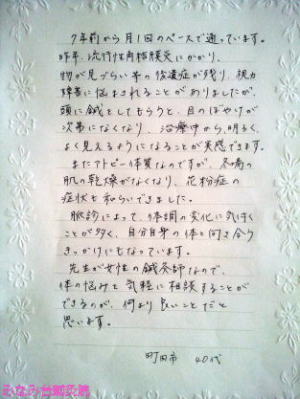 7年前から月1のペースで通っています。
昨年、流行性角結膜炎にかかり、
物が見づらい等の後遺症が残り、視力
障害に悩まされることがありましたが、
頭に鍼をしてもらうと、目のぼやけが
次第になくなり、治療中から、明るく、
よく見えるようになることが実感できます。
またアトピー体質なのですが、冬場の
肌の乾燥がなくなり、花粉症の
症状も和らいできました。
脈診によって、体調の変化に気付く
ことが多く、自分自身の体と向き合う
きっかけにもなっています。
先生が女性の鍼灸師なので、
体の悩みを気軽に相談することが
できるのが、何より良いことだと
思います。
町田市 40代
ふなみ台鍼灸院